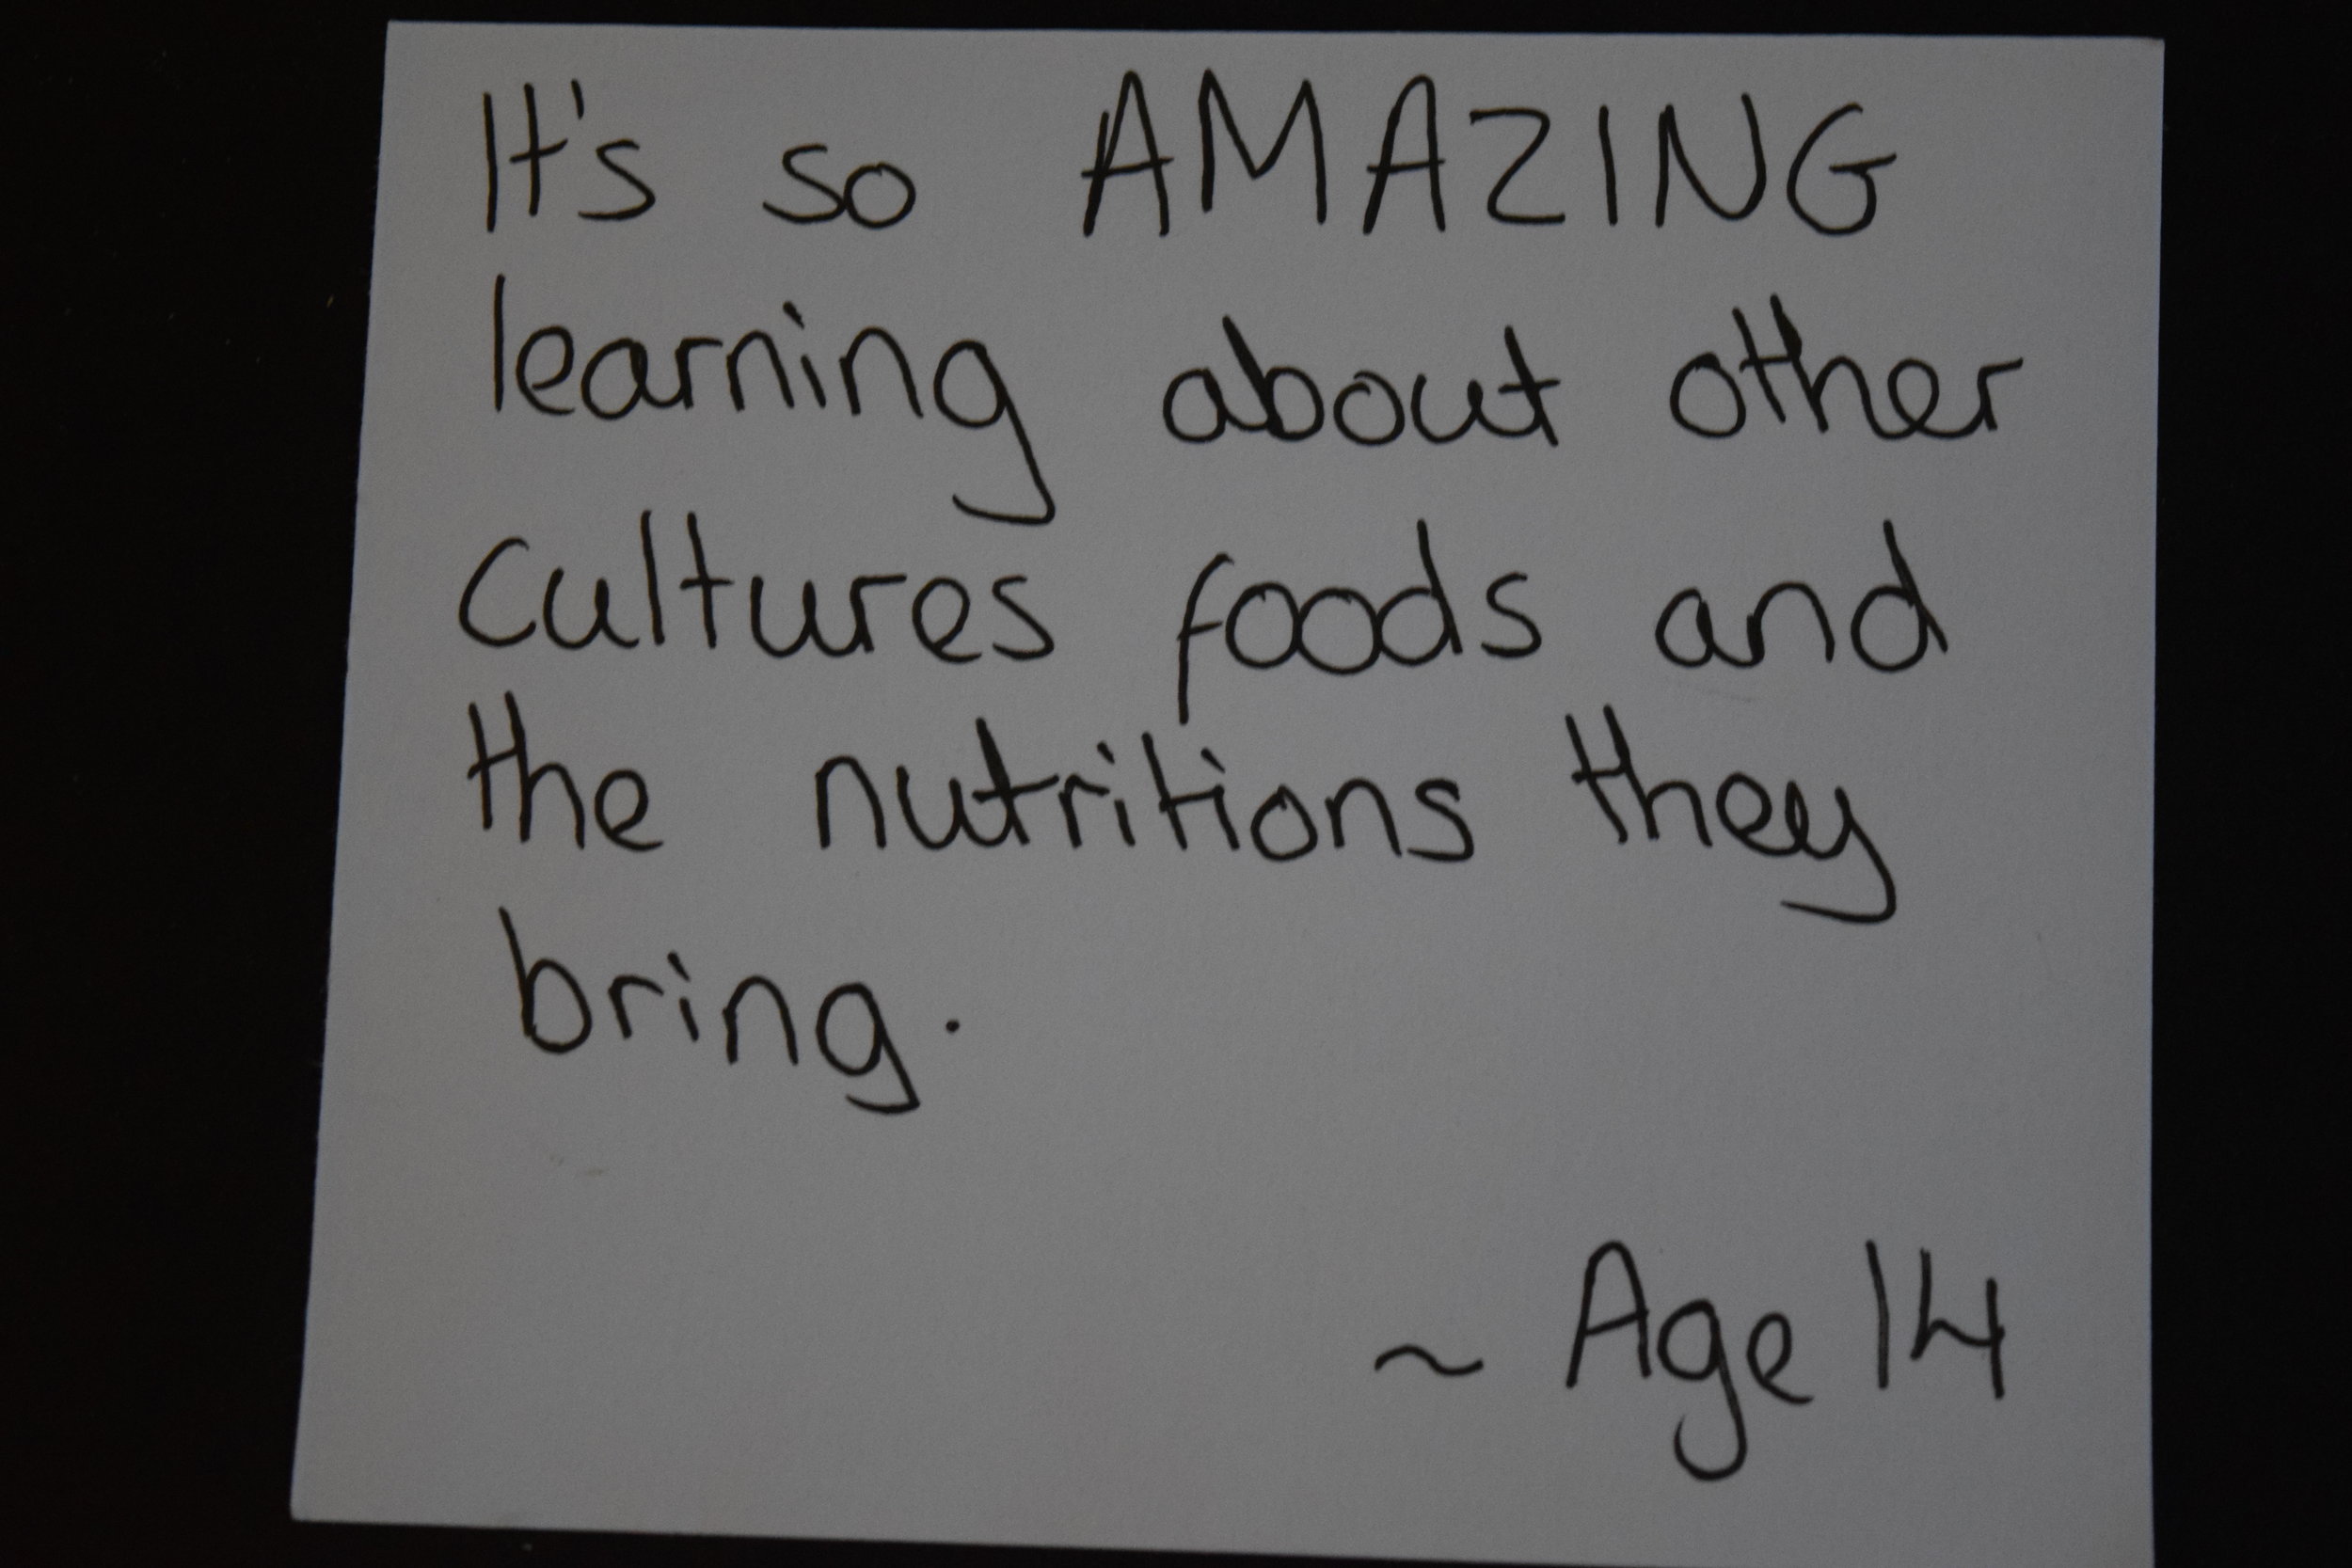 It's so AMAZING
learning about other
cultures foods and
the nutritions they
bring.
~ Age 14